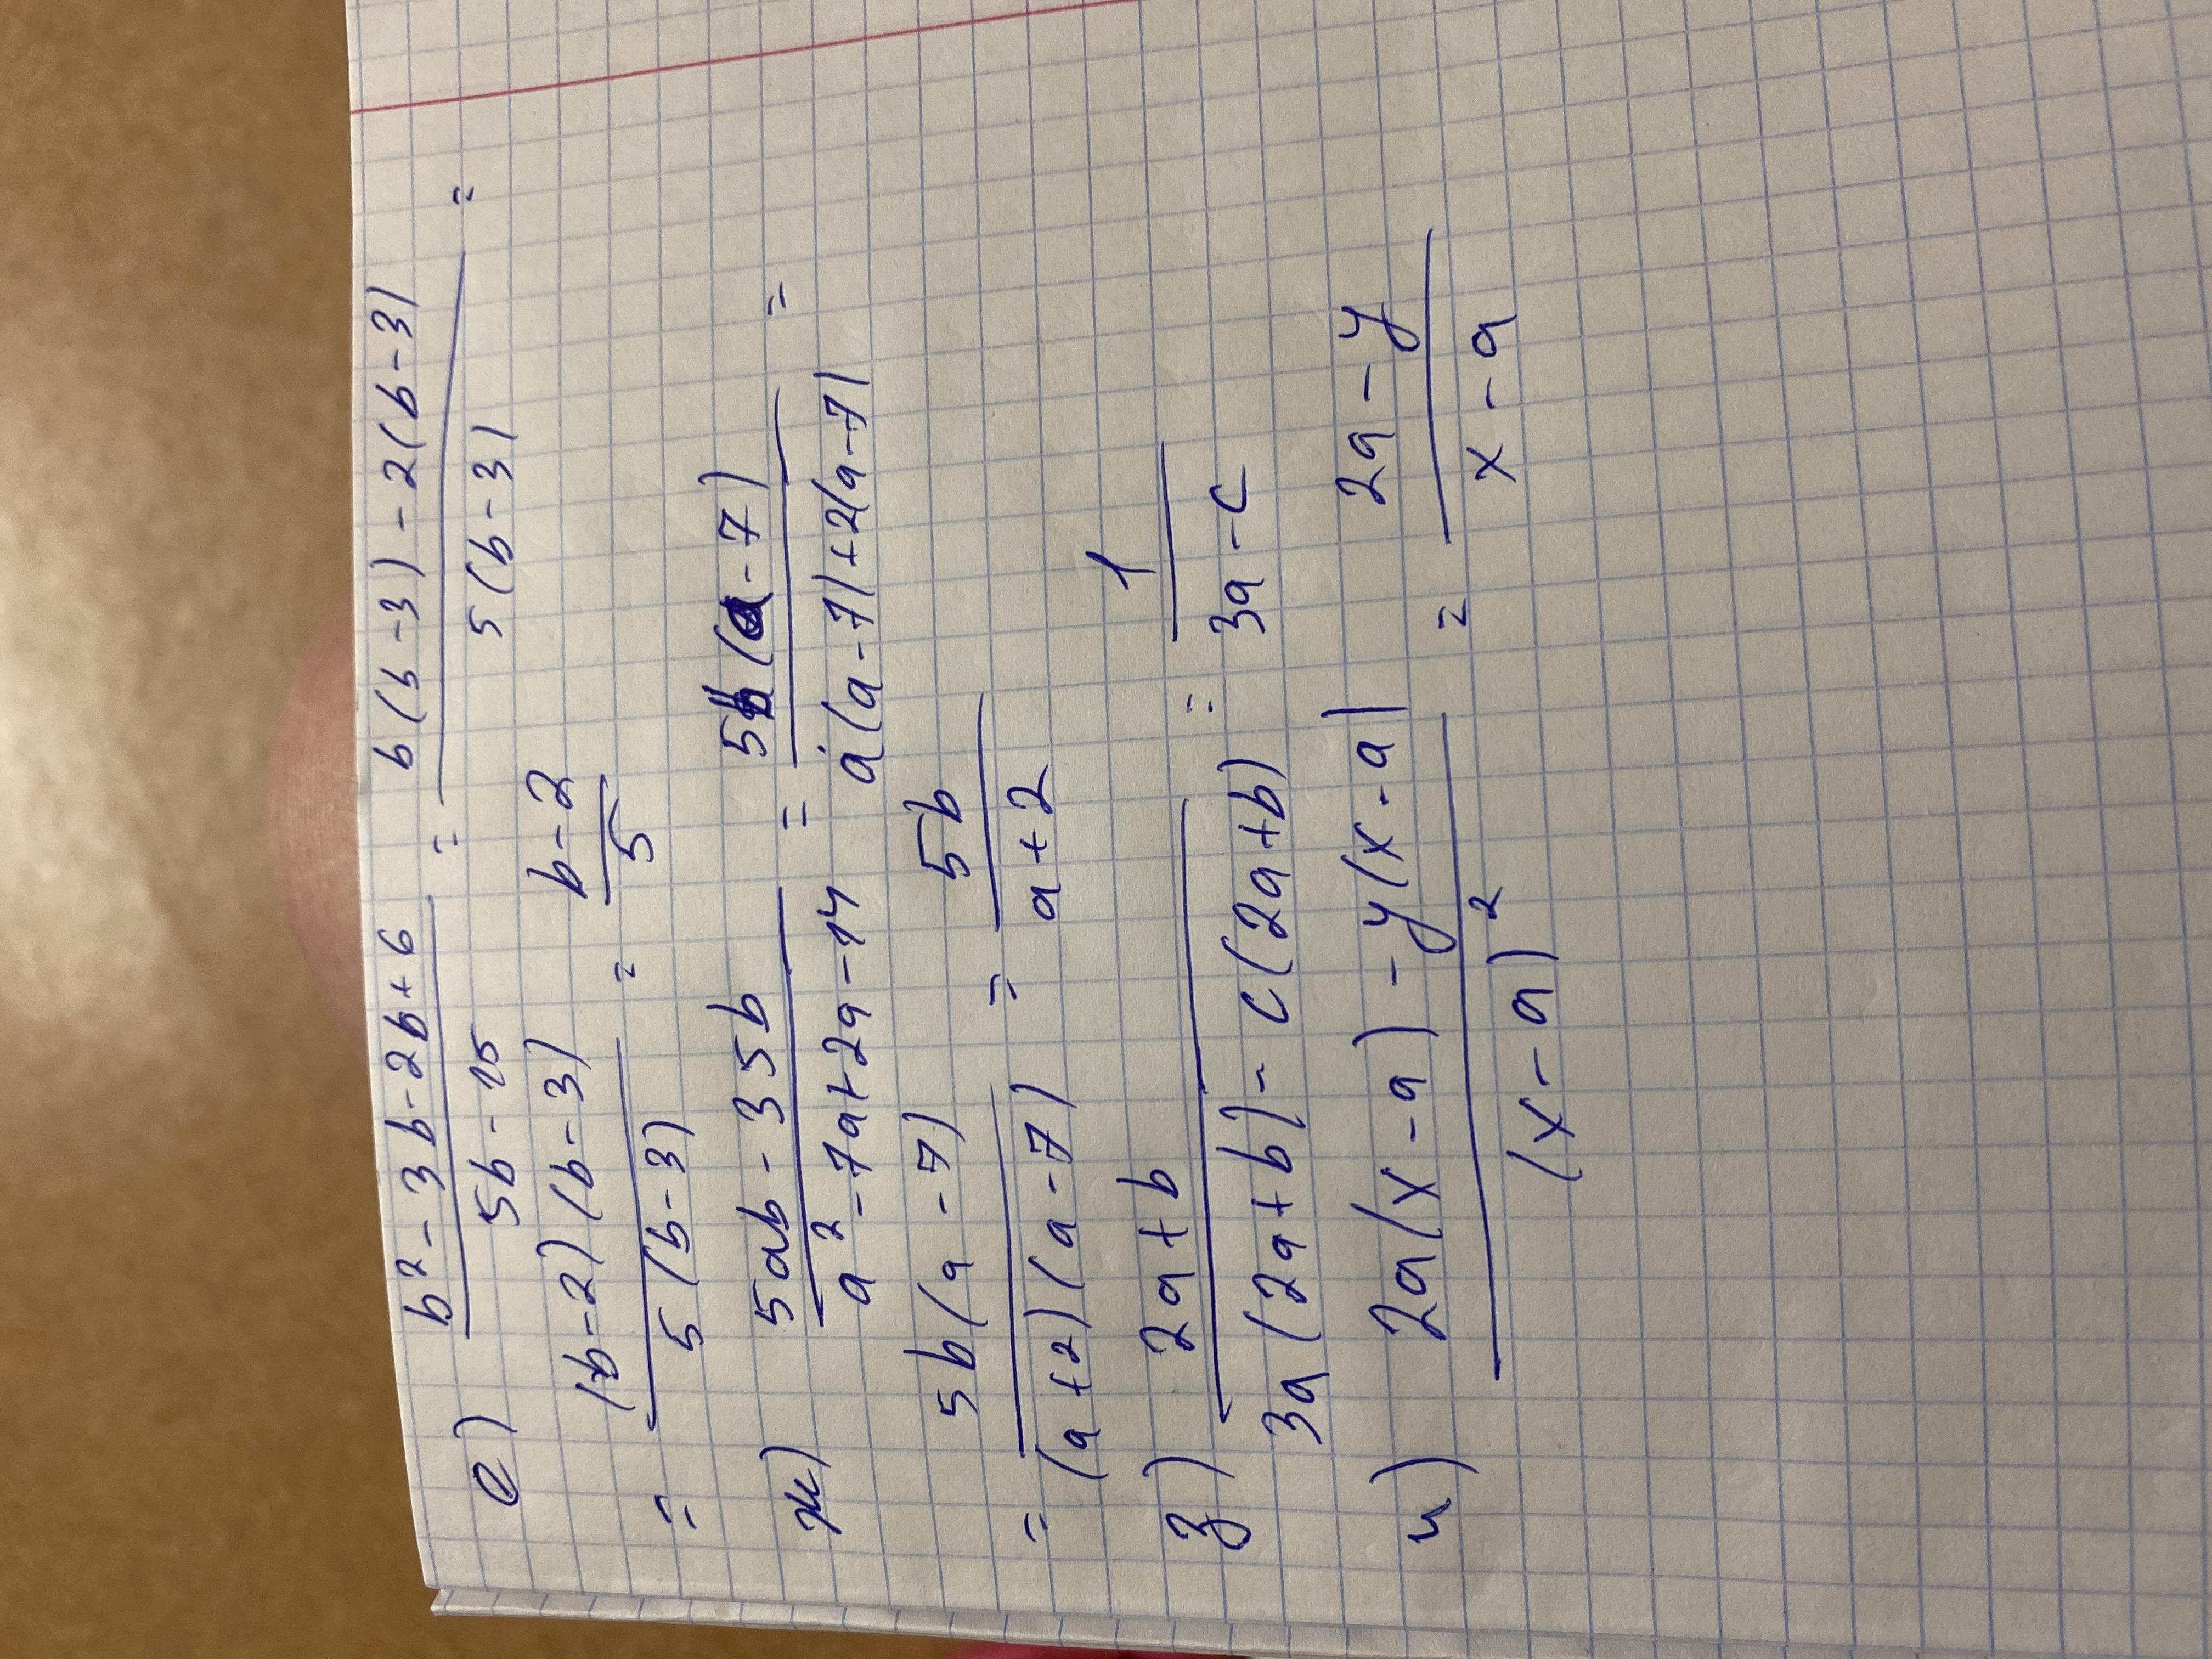 е) b² - 3b - 2b + 6 / 5b - 15 = b(b - 3) - 2(b - 3) / 5(b - 3) =
= (b - 2)(b - 3) / 5(b - 3) = b - 2 / 5
ж) 5ab - 35b / a² - 7a + 2a - 14 = 5b(a - 7) / a(a - 7) + 2(a - 7) =
= 5b(a - 7) / (a + 2)(a - 7) = 5b / a + 2
з) 2a + b / 3a(2a + b) - c(2a + b) = 1 / 3a - c
и) 2a(x - a) - y(x - a) / (x - a)² = 2a - y / x - a